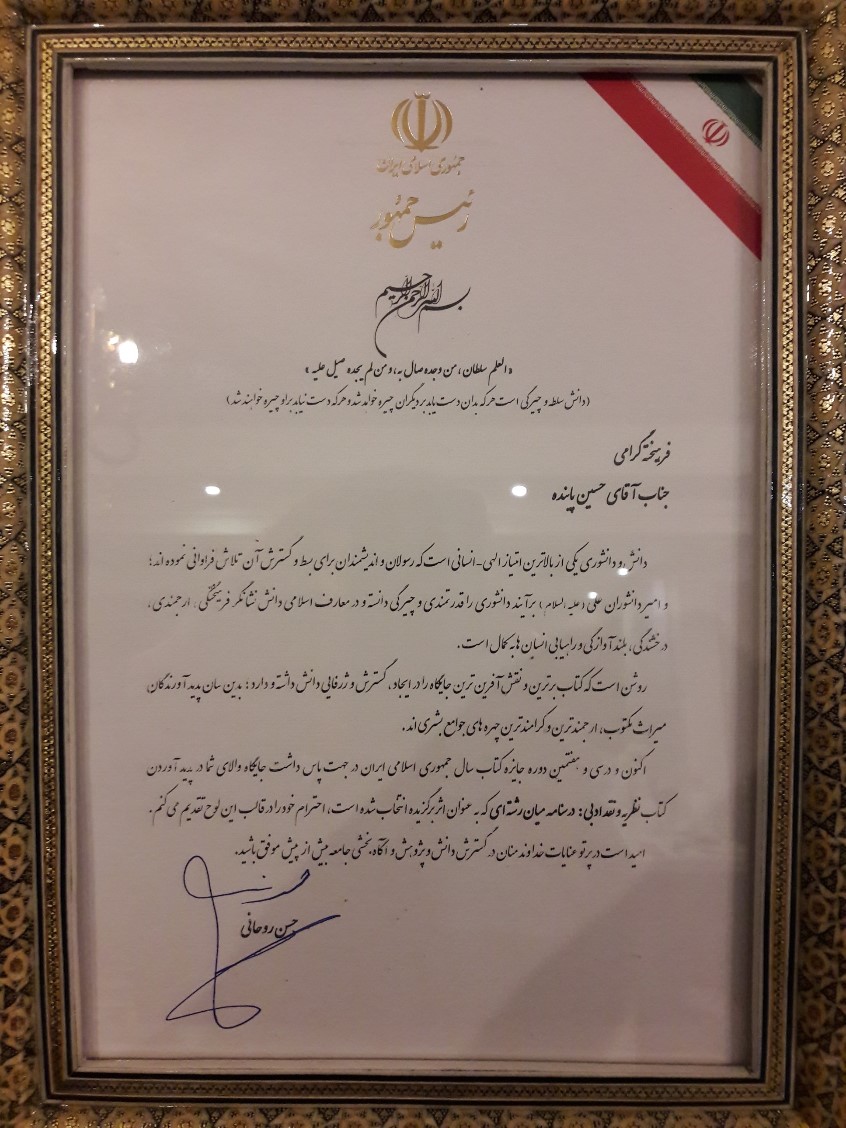 جمهوری اسلامی ایران
رئیس جمهور
بسم الله الرحمن الرحیم
«العلم سلطان، من وجده صال به، ومن لم یجده صیل علیه»
(دانش سلطه و چیرگی است هرکه بدان دست یابد بر دیگران چیره خواهد شد و هرکه دست نیابد بر او چیره خواهند شد)
فرهیخته گرامی
جناب آقای حسین پاینده
دانش و دانشوری یکی از بالاترین امتیاز الهی-انسانی است که رسولان و اندیشمندان برای بسط و گسترش آن تلاش فراوانی نموده اند؛
و امیر دانشوران علی (علیه السلام) برآیند دانشوری را قدرتمندی و چیرگی دانسته و در معارف اسلامی دانش نشانگر فرهیختگی، ارجمندی،
درخشندگی، بلند آوازگی و راهیابی انسان ها به کمال است.
روشن است که کتاب برترین و نقش آفرین ترین جایگاه را در ایجاد، گسترش و ژرفایی دانش داشته و دارد؛ بدین سان پدید آورندگان
میراث مکتوب، ارجمندترین و گرامندترین چهره های جوامع بشری اند.
اکنون و در سی و هفتمین دوره جایزه کتاب سال جمهوری اسلامی ایران در جهت پاس داشت جایگاه والای شما در پدید آوردن
کتاب نظریه و نقد ادبی: درسنامه میان رشته ای که به عنوان اثر برگزیده انتخاب شده است، احترام خود را در قالب این لوح تقدیم می کنم.
امید است در پرتو عنایات خداوند منان در گسترش دانش و پژوهش و آگاه بخشی جامعه بیش از پیش موفق باشید.
حسن روحانی